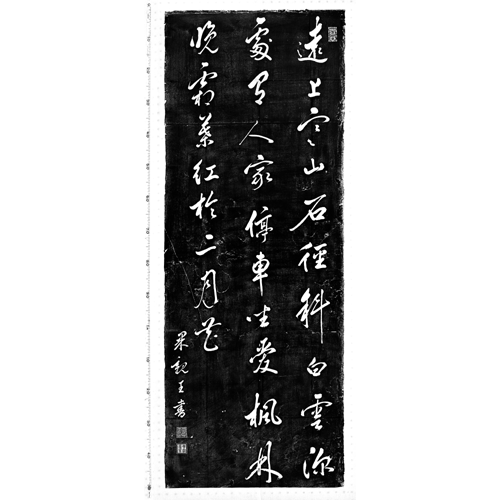 遠上寒山石徑斜白雲深
處有人家停車坐愛楓林
晚霜葉紅於二月花
果親王書